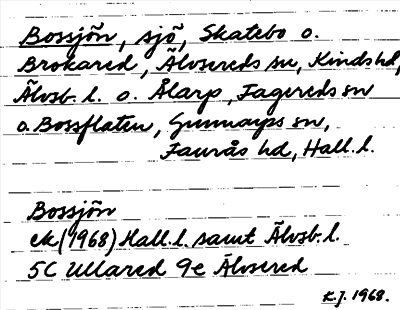 Bossjön, sjö, Skatebo o.
Brokared, Älvsereds sn, Kinds hd,
Älvsb. l. o. Ålarp, Fagereds sn
o. Bossflaten, Gunnarps sn,
Faurås hd, Hall. l.
Bossjön
ek (1968) Hall. l. samt Älvsb. l.
5C Ullared 9e Älvsered
K.J. 1968.